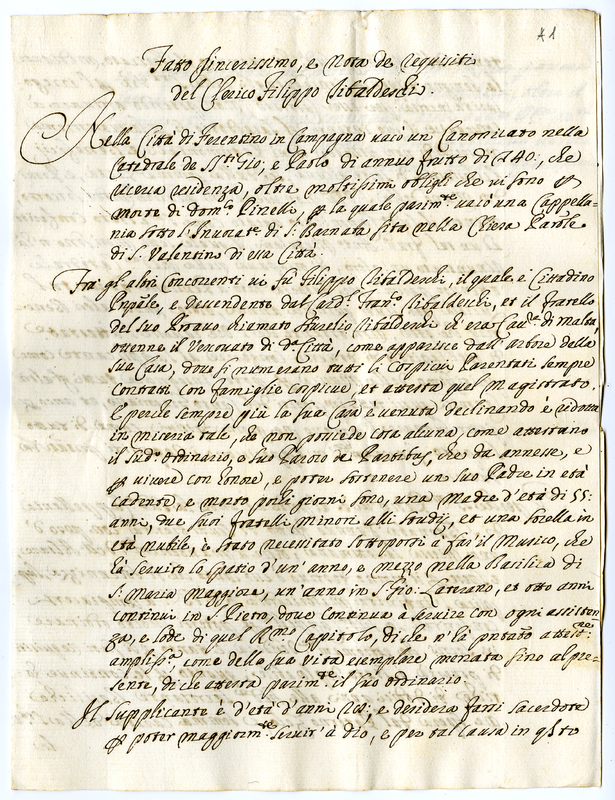 A1
Fatto sincerissimo, e Nota de requisiti
del Clerico Filippo Sibaldeschi.
Nella Città di Ferentino in Campagna vacò un Canonicato nella
Catedrale de SS.ti Gio; e Paolo di annuo frutto di 40:, che
ricerca residenza, oltre moltissimi oblighi che vi sono
morte di Dom.co Pinelli, la quale parim.te vacò una Cappella-
nia sotto l'Invocat.e di S. Bernata sita nella Chiesa Paro.le
di S. Valentino di essa Città.
Frà gl'altri Concorrenti vi fu Filippo Sibaldeschi, il quale è Cittadino
Pnpãle, e descendente dal Card.l Fran.co Sibaldeschi, et il fratello
del suo Proavo chiamato Aurelio Sibaldeschi ch'era Cau.re di Malta
ottenne il Vescovato di d.a Città, come apparisce dall'arbore della
sua Casa, dove si numerano tutti li Cospicui Parentati sempre
contratti con famiglie cospicue, et attesta quel Magistrato.
E perche sempre più la sua Casa è venuta declinando è ridotta
in miseria tale, che non possiede cosa alcuna, come attestano
il sud.o Ordinario, e suo Paroco de Partibus, che da annesse, e
vivere con honore, e poter sostenere un suo Padre in età
cadente, e morto pochi giorni sono, una Madre d'età di 55:
anni, due suoi fratelli minori alli studij, et una sorella in
età nubile, è stato necessitato sottoporsi à far il Musico, che
hà servito lo spatio d'un'anno, e mezzo nella Basilica di
S: Maria Maggiore, un'anno in S. Gio: Laterano, et otto anni
continui in S. Pietro, dove continua à servire con ogni assisten
za, e lode di quel R.mo Capitolo, di che n'hà pñtato attest.ne
amplis.a, come della sua vita esemplare menata sino al pre-
sente, di che attesta parim.te il suo ordinario.
Il supplicante è d'età d'anni e desidera farsi sacerdote
poter maggiorm.te servir'à Dio, e per tal causa in q.sto